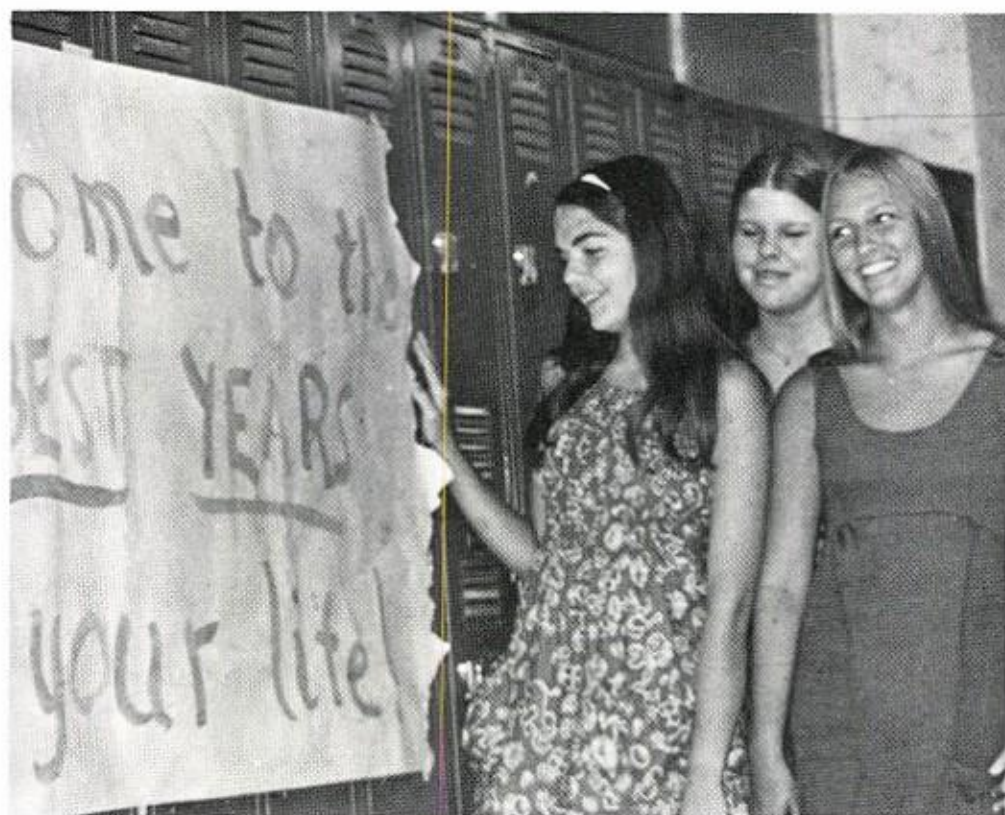 ome to the
BEST YEARS
your life!